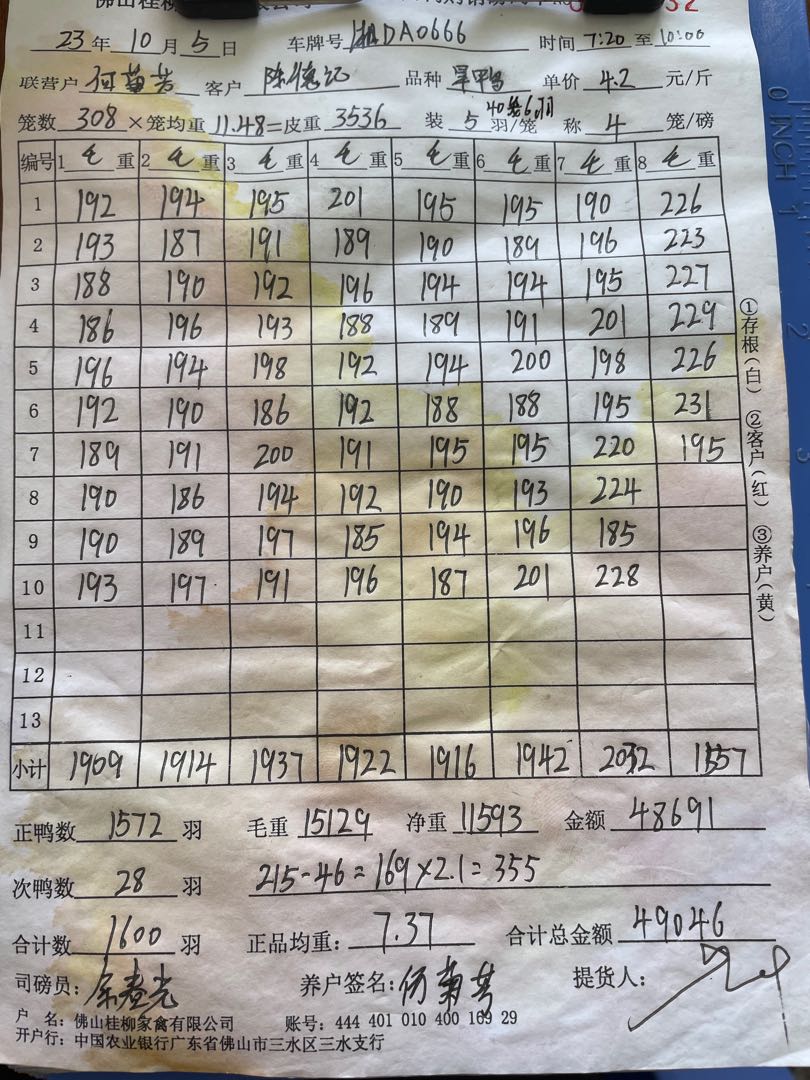 佛山桂柳
23 年 10 月 5 日 车牌号 湘DA0666 时间 7:20 至 10:00
联营户 何菊芳 客户 陈德记 品种 旱鸭 单价 4.2 元/斤
40笼6羽
笼数 308 ×笼均重 11.48=皮重 3536 装 5 羽/笼 称 4 笼/磅
编号 1 毛 重 2 毛 重 3 毛 重 4 毛 重 5 毛 重 6 毛 重 7 毛 重 8 毛 重
1 192 194 195 201 195 195 190 226
2 193 187 191 189 190 189 196 223
3 188 190 192 196 194 194 195 227
4 186 196 193 188 189 191 201 229
5 196 194 198 192 194 200 198 226
6 192 190 186 192 188 188 195 231
7 189 191 200 191 195 195 220 195
8 190 186 194 192 190 193 224
9 190 189 197 185 194 196 185
10 193 197 191 196 187 201 228
11
12
13
小计 1909 1914 1937 1922 1916 1942 2032 1557
正鸭数 1572 羽 毛重 15129 净重 11593 金额 48691
次鸭数 28 羽 215-46=169×2.1=355
合计数 1600 羽 正品均重: 7.37 合计总金额 49046
司磅员: 养户签名: 何菊芳 提货人:
户 名: 佛山桂柳家禽有限公司 账号: 444 401 010 400 169 29
开户行: 中国农业银行广东省佛山市三水区三水支行
①存根(白) ②客户(红) ③养户(黄)
0 INCH 1 2 3